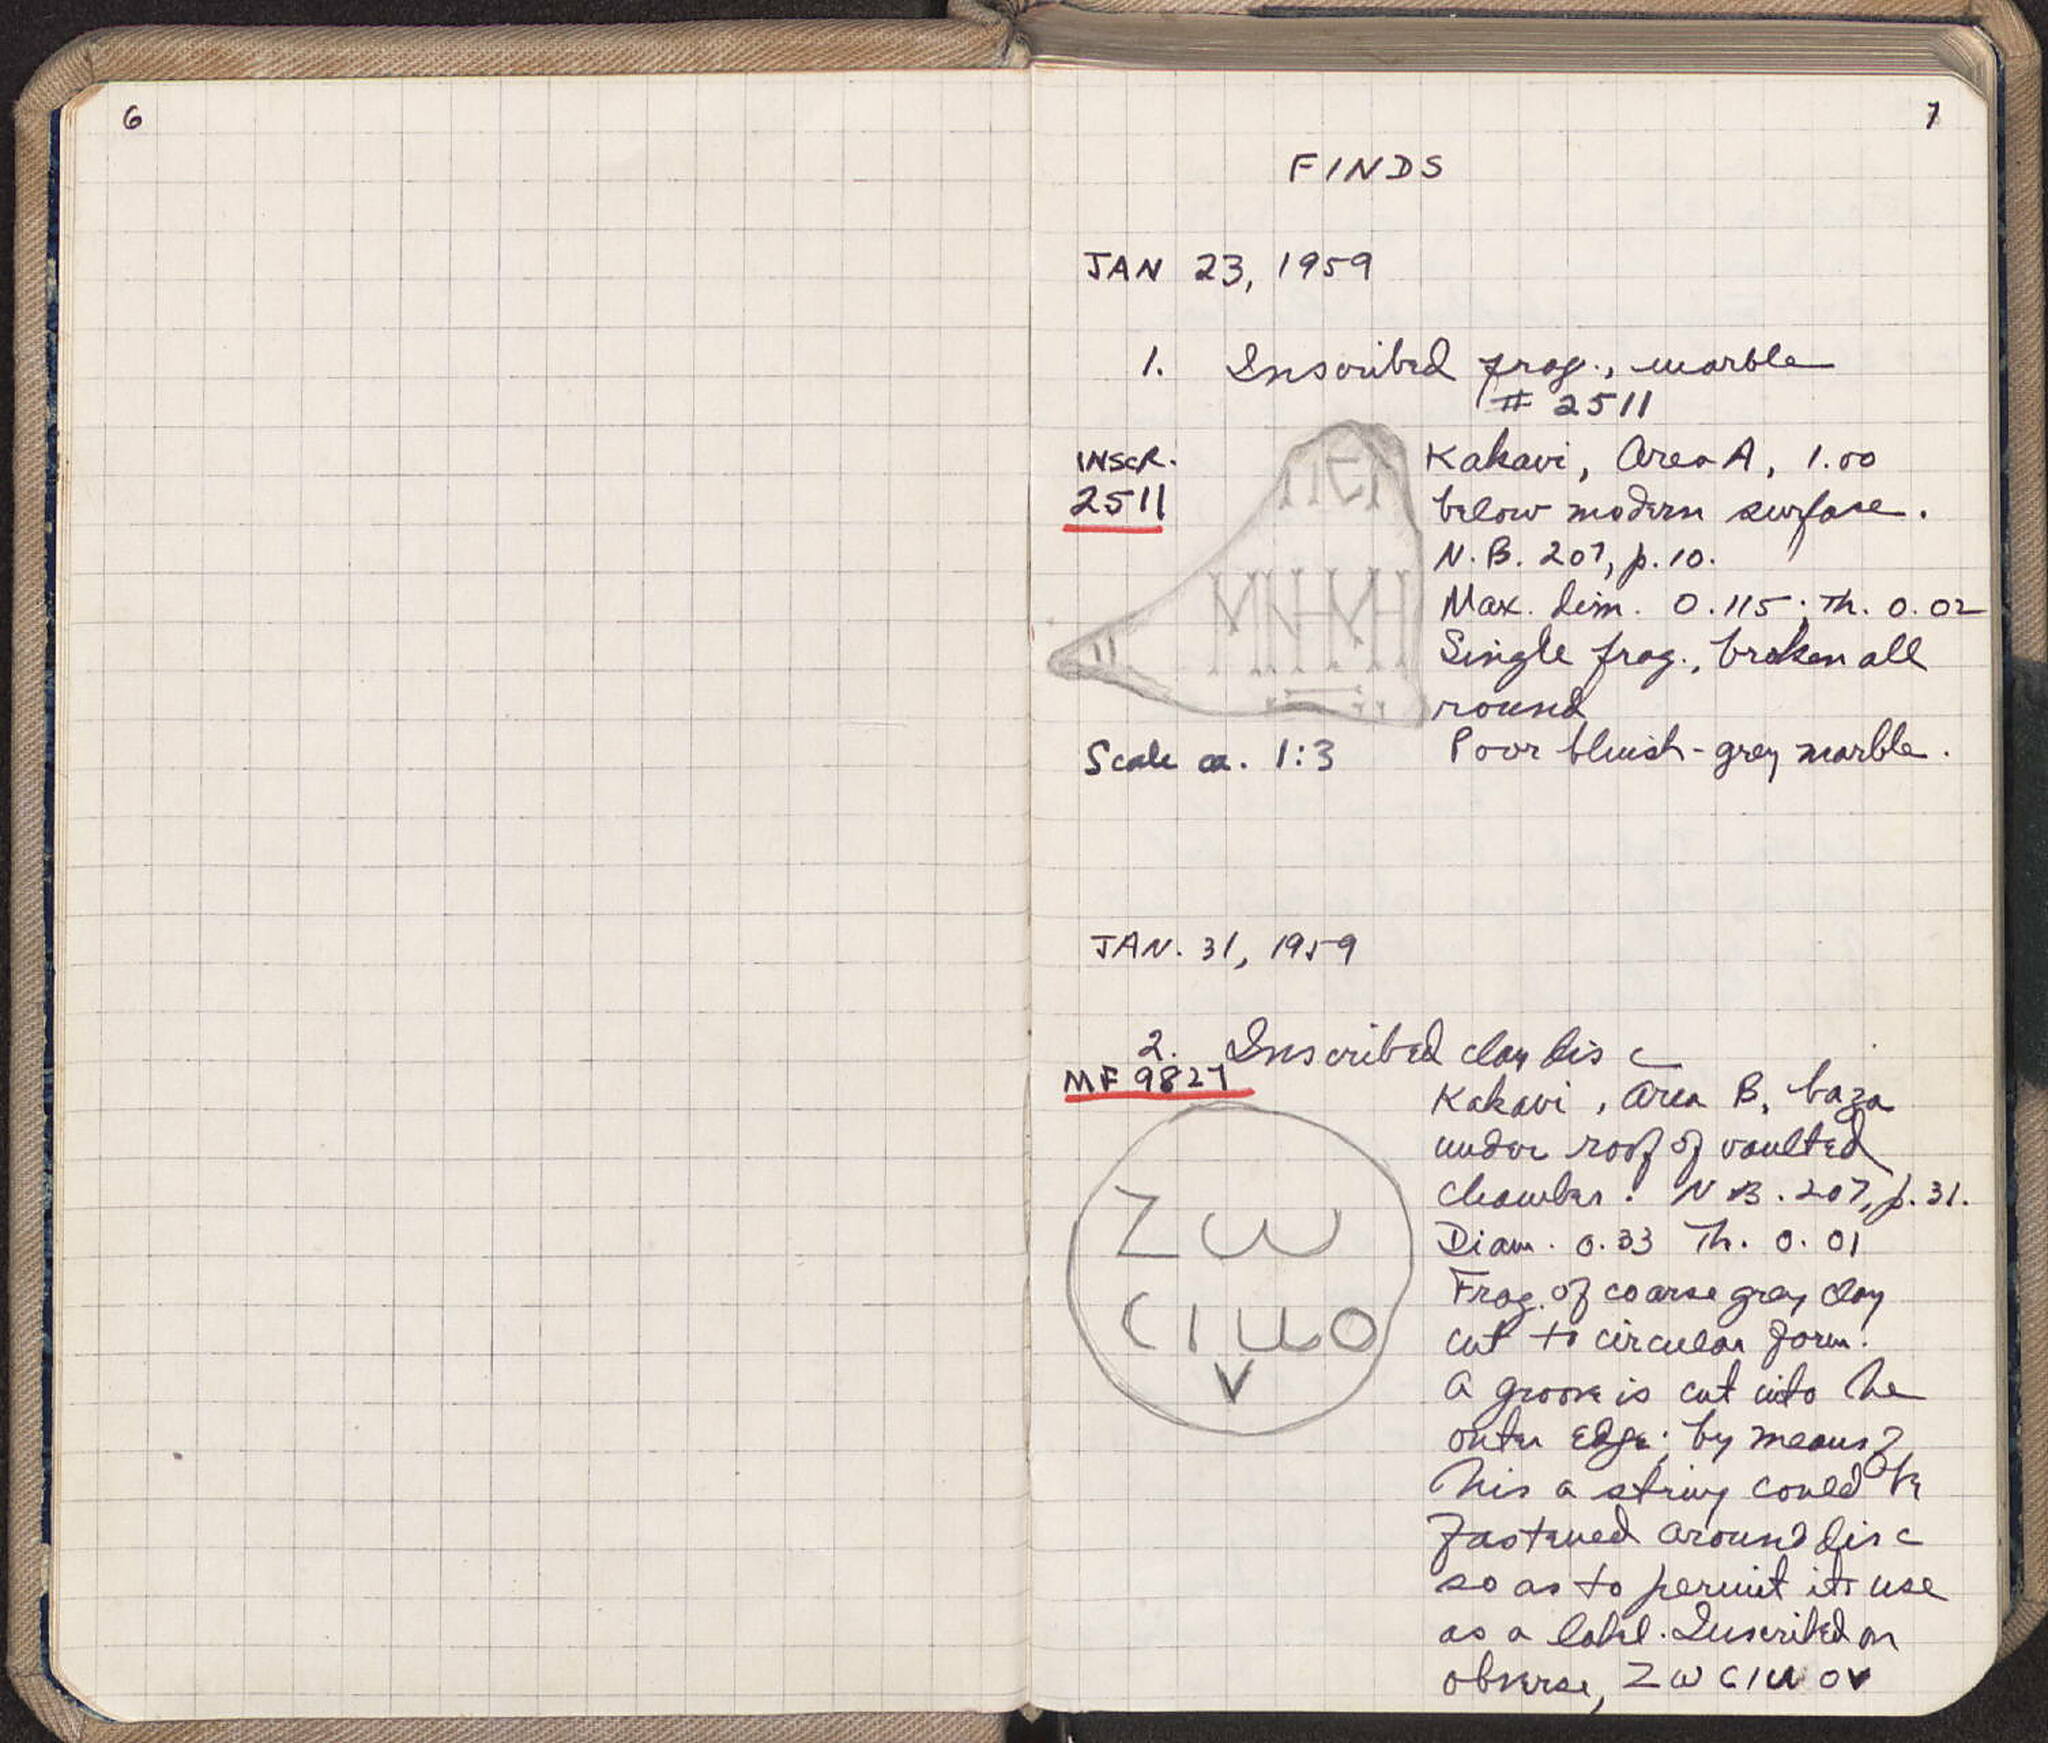 6
7
FINDS
JAN 23, 1959
1. Inscribed frag., marble
# 2511
INSCR.
2511
Kakavi, Area A, 1.00
below modern surface.
N.B. 207, p. 10.
Max. dim. 0.115; Th. 0.02
Single frag., broken all
round
Poor bluish-grey marble.
Scale ca. 1:3
JAN. 31, 1959
2. Inscribed clay disc
MF 9827
Kakavi, Area B, baza
under roof of vaulted
chamber. NB. 207, p. 31.
Diam. 0.33 Th. 0.01
Frag. of coarse grey clay
cut to circular form.
A groove is cut into the
outer edge; by means of
this a string could be
fastened around disc
so as to permit its use
as a label. Inscribed on
obverse, Ζω CIμ ον
Ζω
CIμο
ν